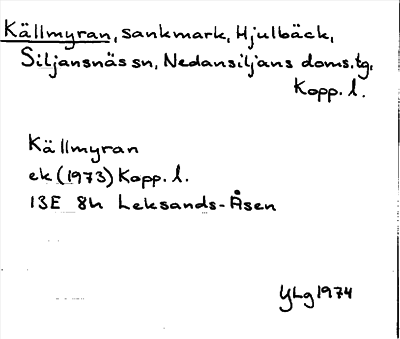 Källmyran, sankmark, Hjulbäck,
Siljansnäs sn, Nedansiljans doms.tg,
Kopp. l.
Källmyran
ek (1973) Kopp. l.
13E 8h Leksands-Åsen
YLg 1974